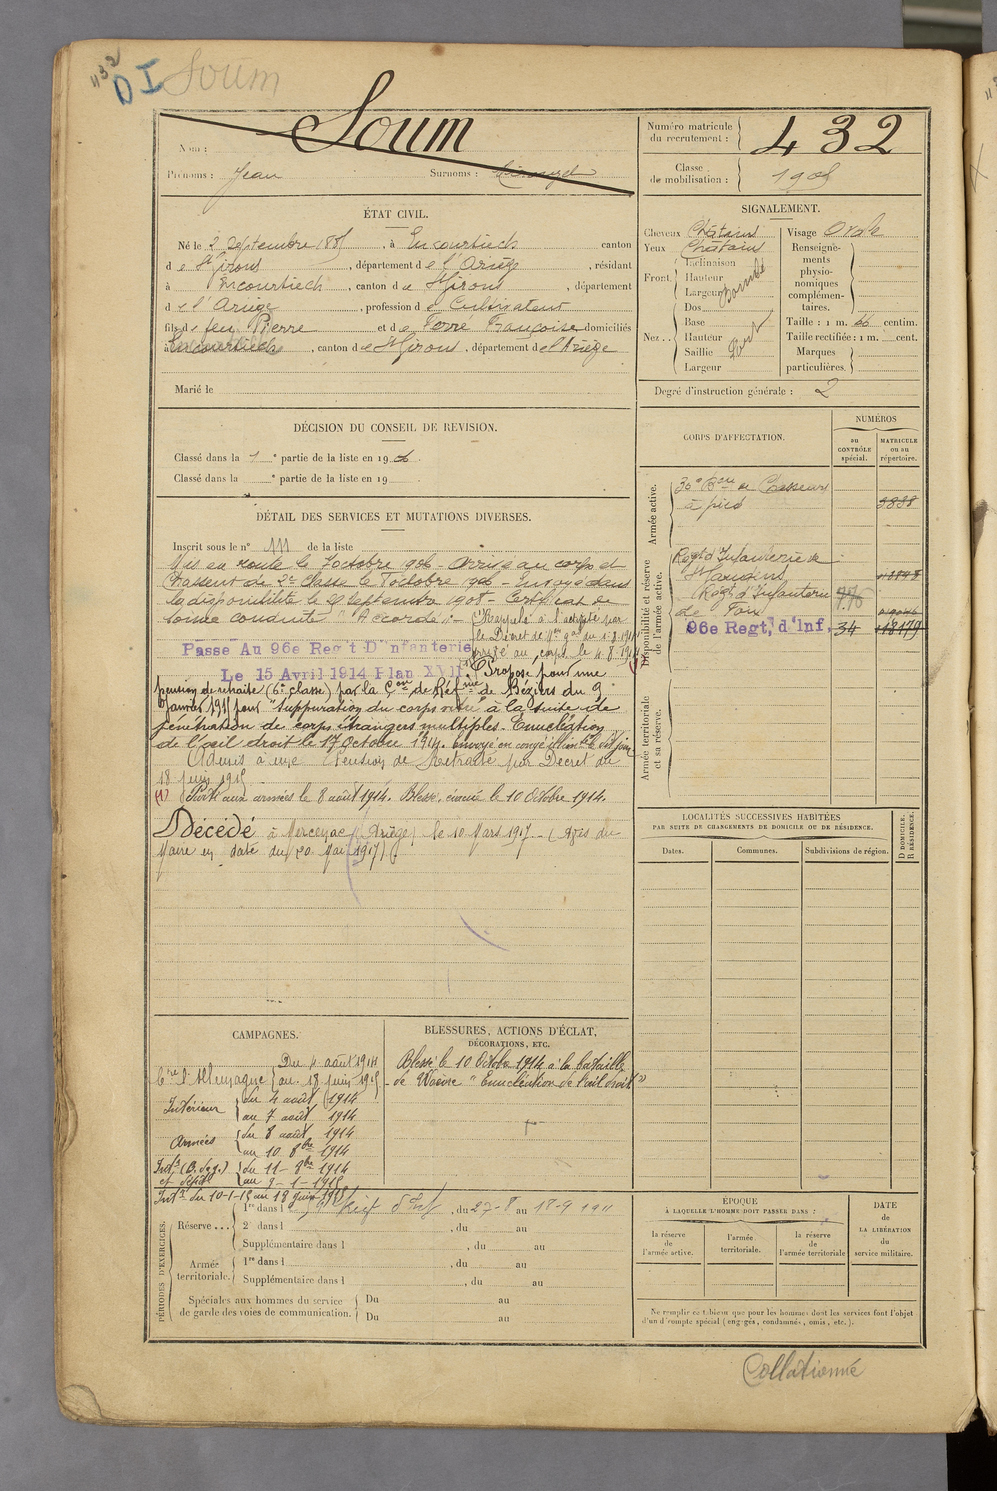 432
DI Soum
Soum
Nom :
Prénoms : Jean Surnoms :
Numéro matricule du recrutement : 432
Classe de mobilisation : 1905
ÉTAT CIVIL.
Né le 2 Septembre 1885, à Encourtiech canton
de St Girons, département de l'Ariège, résidant
à Encourtiech, canton de St Girons, département
de l'Ariège, profession de Cultivateur
fils de feu Pierre et de Ferré Françoise domiciliés
à Encourtiech, canton de St Girons, département de l'Ariège
Marié le
SIGNALEMENT.
Cheveux Châtains Visage Ovale
Yeux Châtains
Renseignements physionomiques complémentaires.
Front. Inclinaison
Hauteur
Largeur Bombé
Nez.. Dos
Base
Hauteur Fort
Saillie
Largeur
Taille : 1 m. 66 centim.
Taille rectifiée : 1 m. cent.
Marques particulières.
Degré d'instruction générale : 2
DÉCISION DU CONSEIL DE REVISION.
Classé dans la 1e partie de la liste en 1906.
Classé dans la e partie de la liste en 19
DÉTAIL DES SERVICES ET MUTATIONS DIVERSES.
Inscrit sous le n° 111 de la liste
Mis en route le 7 octobre 1906 - Arrivé au corps et
Chasseur de 2e classe le 7 octobre 1906 - Envoyé dans
la disponibilité le 28 septembre 1908 - Certificat de
bonne conduite "Accordé".- Rappelé à l'activité par
le Décret de Mon Gale du 1.8.1914
arrivé au corps le 4.8.1914
Passe Au 96e Regt D'Infanterie
Le 15 Avril 1914 Plan XVII
(1)
Proposé pour une
pension de retraite (6e classe) par la Con de Réfme de Béziers du 9
Janvier 1915 pour "suppuration du corps vitré à la suite de
pénétration de corps étrangers multiples. Enucléation
de l'œil droit le 17 Octobre 1914. Envoyé en congé illimité
Admis à une Pension de Retraite par Décret du
18 Juin 1915
(1) Parti aux armées le 8 août 1914. Blessé, évacué le 10 Octobre 1914.
Décédé à Mercenac (Ariège) le 10 Mars 1917 - (Avis du
Maire en date du 20 Mai 1917).
CORPS D'AFFECTATION.
NUMÉROS
au CONTRÔLE spécial.
MATRICULE ou au répertoire.
Armée active.
30e Bon de Chasseurs
à pied 3838
Disponibilité et réserve de l'armée active.
Regt d'Infanterie de
St Gaudens
Regt d'Infanterie
de Foix
96e Regt, d'Inf, 34 18179
Armée territoriale et sa réserve.
LOCALITÉS SUCCESSIVES HABITÉES
PAR SUITE DE CHANGEMENTS DE DOMICILE OU DE RÉSIDENCE.
Dates. Communes. Subdivisions de région. D DOMICILE. R RÉSIDENCE.
CAMPAGNES.
Du 4 août 1914
Cre l'Allemagne au 18 juin 1915
Intérieur du 4 août 1914
au 7 août 1914
Armées du 8 août 1914
au 10 8bre 1914
du 11- 8bre 1914
et dépôt au 9-1-1915
Intr du 10-1-15 au 18 juin 1915
BLESSURES, ACTIONS D'ÉCLAT,
DÉCORATIONS, ETC.
Blessé le 10 Octobre 1914 à la bataille
de Woëvre "Enucléation de l'œil droit"
PÉRIODES D'EXERCICES.
Réserve...
1re dans l Regt d'Inf, du 27-8 au 18-9 1911
2e dans l , du au
Supplémentaire dans l , du au
Armée territoriale.
1re dans l , du au
Supplémentaire dans l , du au
Spéciales aux hommes du service de garde des voies de communication.
Du au
Du au
ÉPOQUE
À LAQUELLE L'HOMME DOIT PASSER DANS :
la réserve de l'armée active.
l'armée territoriale.
la réserve de l'armée territoriale
DATE
de
LA LIBÉRATION
du
service militaire.
Ne remplir ce tableau que pour les hommes dont les services font l'objet
d'un décompte spécial (engagés, condamnés, omis, etc.).
Collationné